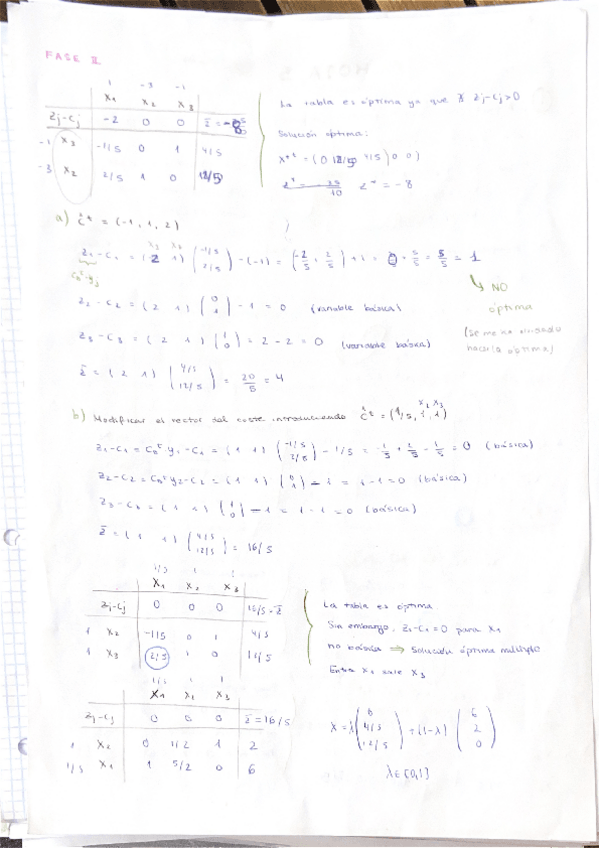 FASE 2
1 -3 -1
x1 x2 x3
zj-cj -2 0 0 z̄ = -8
-1 x3 -1/5 0 1 4/5
-3 x2 2/5 1 0 12/5
La tabla es óptima ya que ∄ zj-cj>0
Solución óptima:
z* = -8
a) ĉt = (-1, 1, 2)
x3 x2
z1-c1 = (2 1) (-1/5 2/5) -(-1) = (-2/5 + 2/5) + 1 = 0 + 5/5 = 5/5 = 1
NO
óptima
z2-c2 = (2 1) (0 1) - 1 = 0 (variable básica)
z3-c3 = (2 1) (1 0) = 2-2 = 0 (variable básica)
hacerla óptima)
z̄ = (2 1) (4/5 12/5) = 20/5 = 4
x2 x3
b) Modificar el vector del coste introduciendo ĉt = (1/5, 1, 1)
z1-c1 = cBt y1-c1 = (1 1) (-1/5 2/5) - 1/5 = -1/5 + 2/5 - 1/5 = 0 (básica)
z2-c2 = cBt y2-c2 = (1 1) (0 1) - 1 = 1-1=0 (básica)
z3-c3 = (1 1) (1 0) - 1 = 1-1=0 (básica)
z̄ = (1 1) (4/5 12/5) = 16/5
1/5 1 1
x1 x2 x3
zj-cj 0 0 0 16/5 = z̄
1 x2 -1/5 0 1 4/5
1 x3 2/5 1 0 12/5
La tabla es óptima.
Sin embargo, z1-c1=0 para x1
no básica ⟹ Solución óptima múltiple
Entra x1 sale x3
1/5 1 1
x1 x2 x3
zj-cj 0 0 0 z̄=16/5
1 x2 0 1/2 1 2
1/5 x1 1 5/2 0 6
x = λ (0 4/5 12/5) + (1-λ) (6 2 0)
λ∈[0,1]